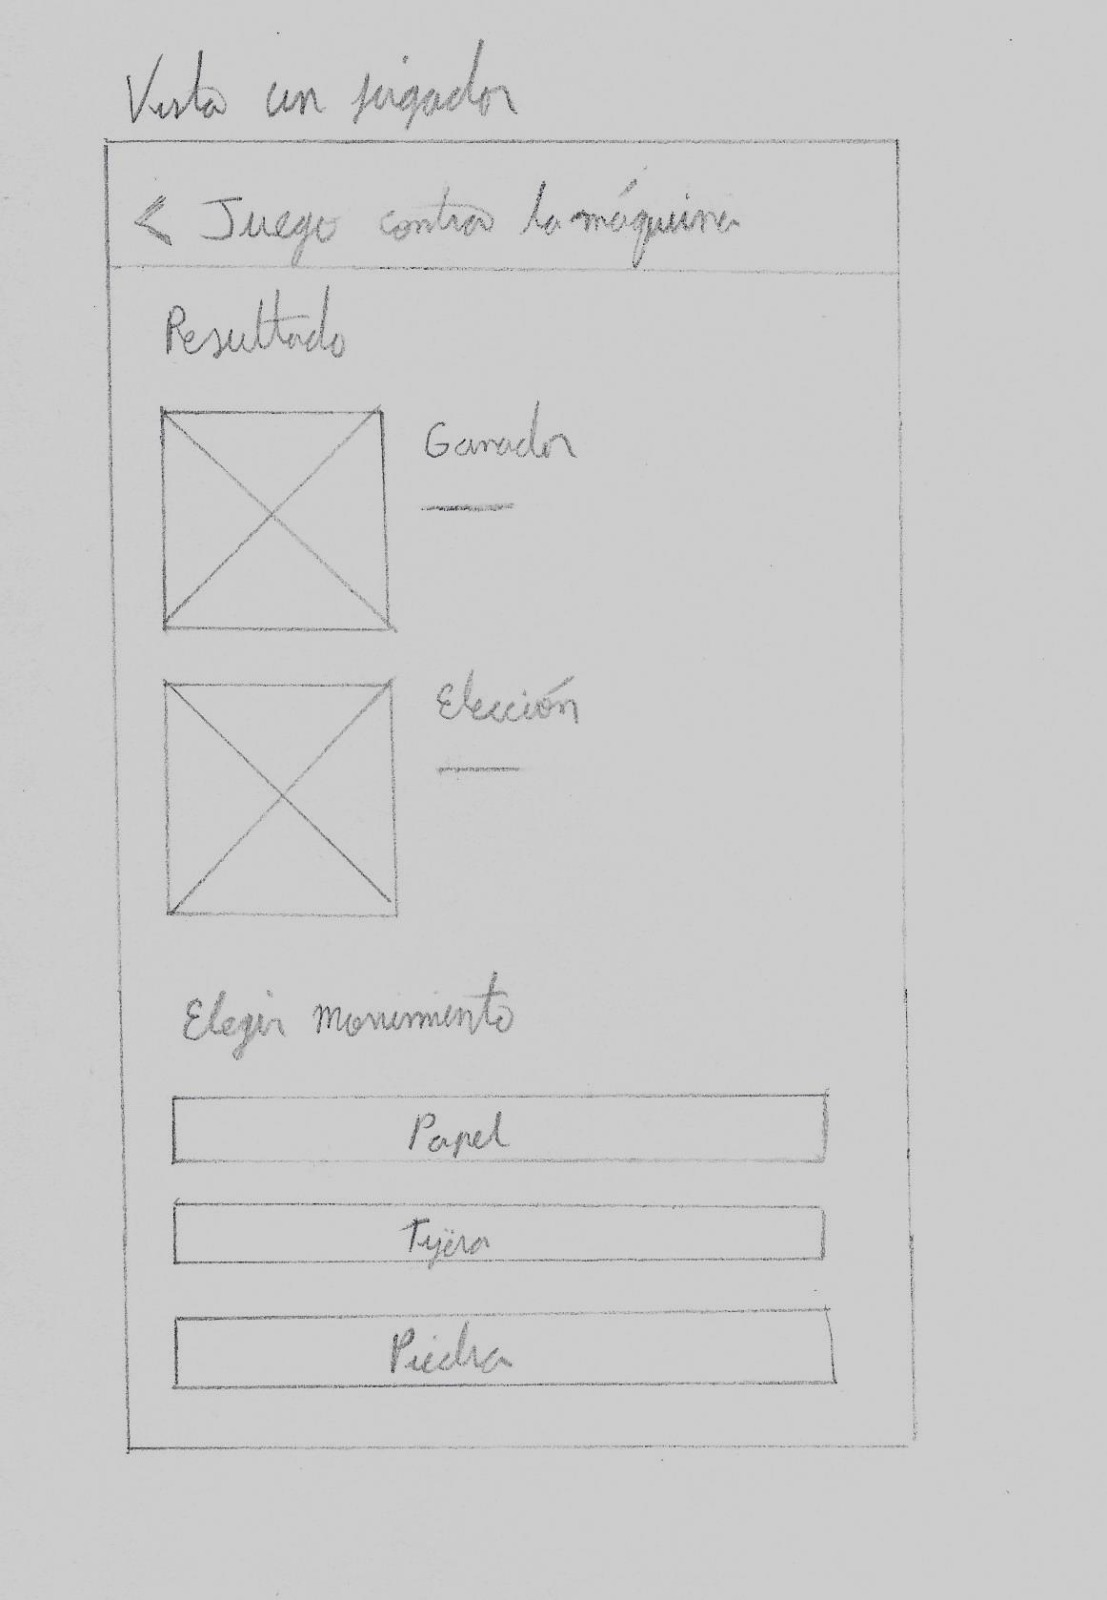 Vista un jugador
< Juego contra la máquina
Resultado
Ganador
Elección
Elegir movimiento
Papel
Tijera
Piedra